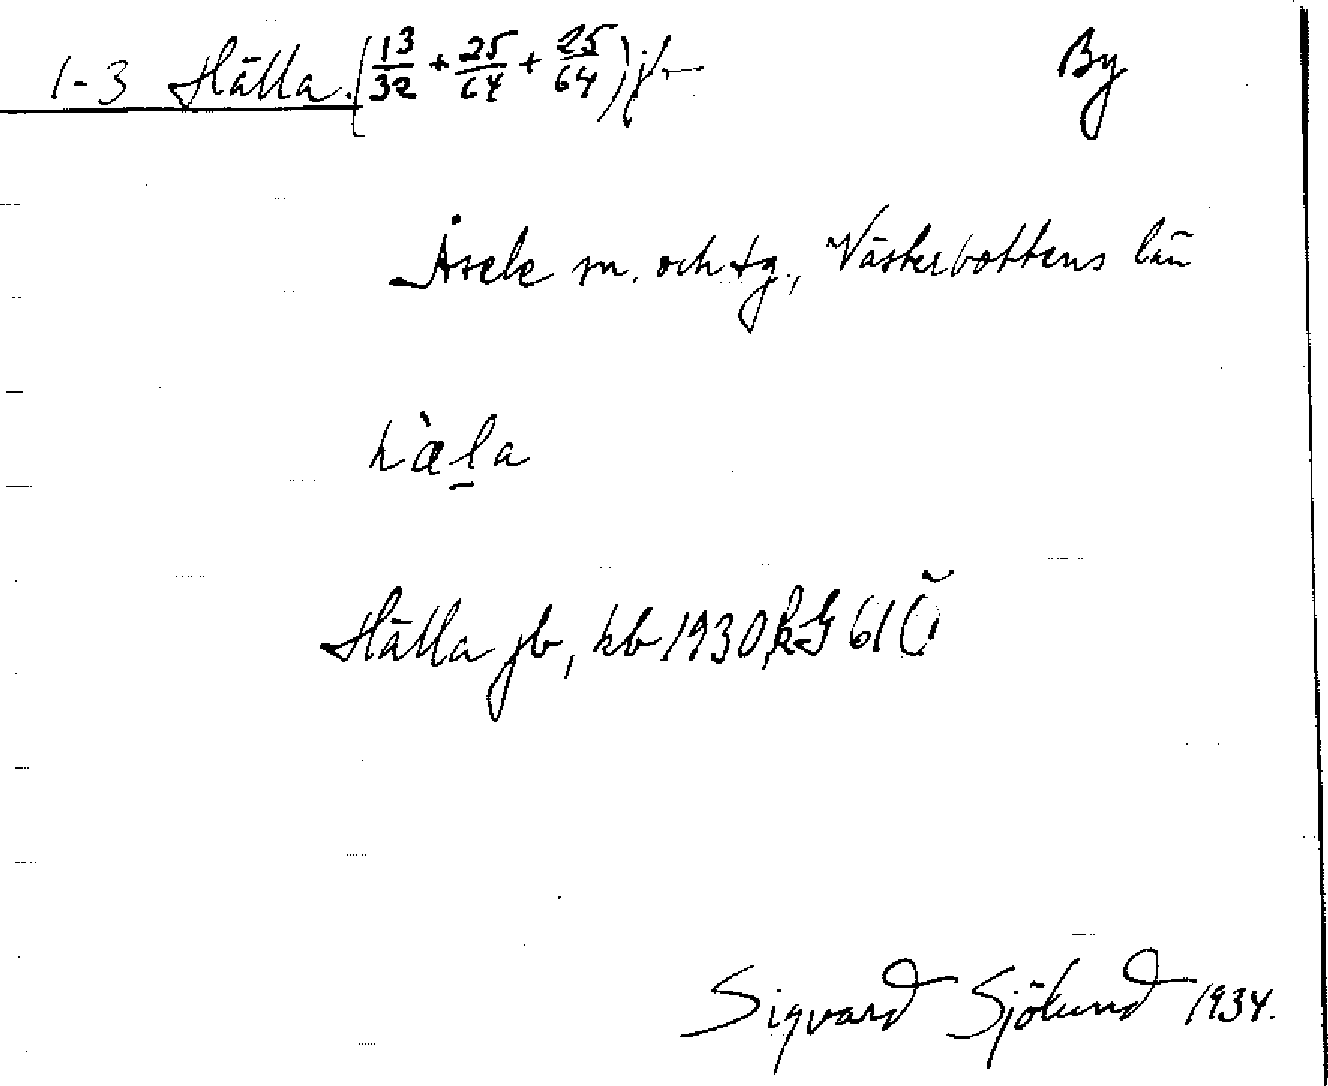 1-3 Hälla. (13/32 + 25/64 + 25/64) By
Åsele sn. och tg., Västerbottens län
hàl̠a
Hälla jb, kb 1930, kG 61
Sigvard Sjölund 1934.